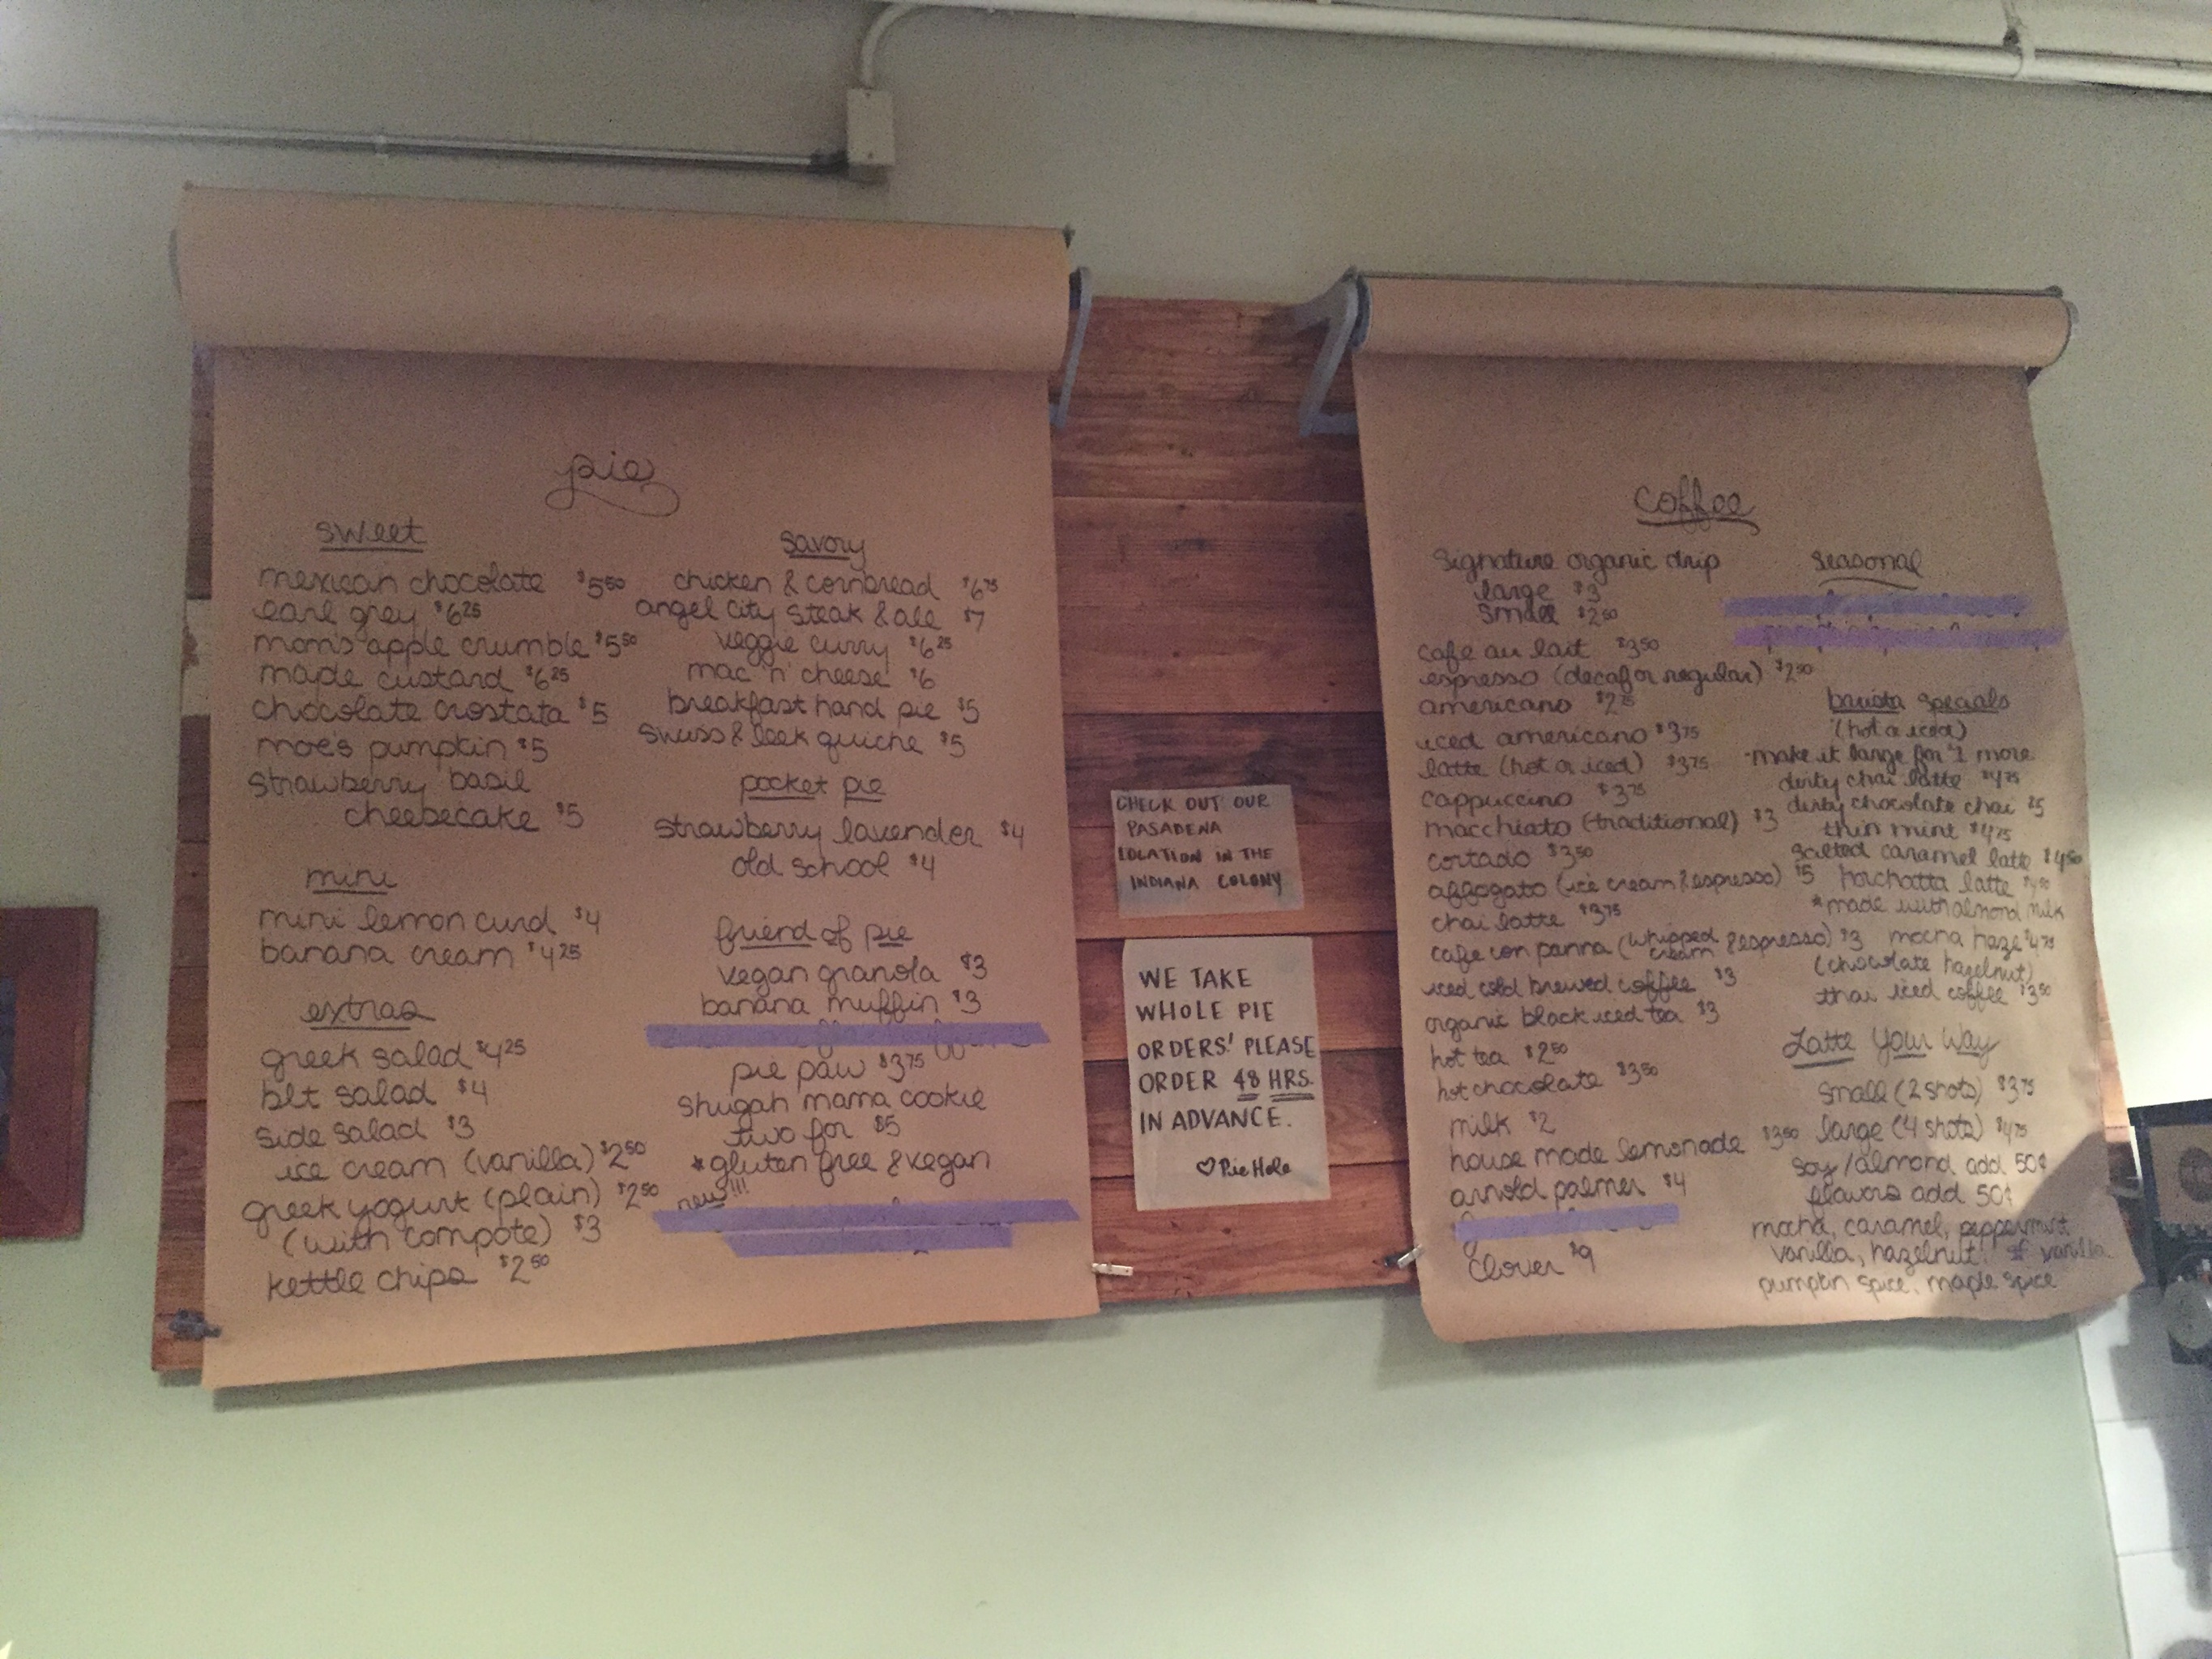 pie
sweet
mexican chocolate $5.50
earl grey $6.25
mom's apple crumble $5.50
maple custard $6.25
chocolate crostata $5
moe's pumpkin $5
strawberry basil
cheesecake $5
mini
mini lemon curd $4
banana cream $4.25
extras
greek salad $4.25
blt salad $4
side salad $3
ice cream (vanilla) $2.50
greek yogurt (plain) $2.50
(with compote) $3
kettle chips $2.50
savory
chicken & cornbread $6.75
angel city steak & ale $7
veggie curry $6.25
mac 'n' cheese $6
breakfast hand pie $5
swiss & leek quiche $5
pocket pie
strawberry lavender $4
old school $4
friend of pie
vegan granola $3
banana muffin $3
pie paw $3.75
shugah mama cookie
two for $5
*gluten free & vegan
new!!!
CHECK OUT OUR
PASADENA
LOCATION IN THE
INDIANA COLONY
WE TAKE
WHOLE PIE
ORDERS! PLEASE
ORDER 48 HRS.
IN ADVANCE.
♡ Pie Hole
coffee
signature organic drip
large $3
small $2.50
cafe au lait $3.50
espresso (decaf or regular) $2.50
americano $2.75
iced americano $3.75
latte (hot or iced) $3.75
cappuccino $3.75
macchiato (traditional) $3
cortado $3.50
affogato (ice cream & espresso) $5
chai latte $3.75
cafe con panna (whipped cream & espresso) $3
iced cold brewed coffee $3
organic black iced tea $3
hot tea $2.50
hot chocolate $3.50
milk $2
house made lemonade $3.50
arnold palmer $4
clover $9
seasonal
barista specials
(hot or iced)
-make it large for $1 more
dirty chai latte $4.75
dirty chocolate chai $5
thin mint $4.75
salted caramel latte $4.50
horchatta latte $4.50
*made with almond milk
mocha haze $4.75
(chocolate hazelnut)
thai iced coffee $3.50
Latte Your Way
small (2 shots) $3.75
large (4 shots) $4.75
soy/almond add 50¢
flavors add 50¢
mocha, caramel, peppermint
vanilla, hazelnut, sf vanilla
pumpkin spice, maple spice